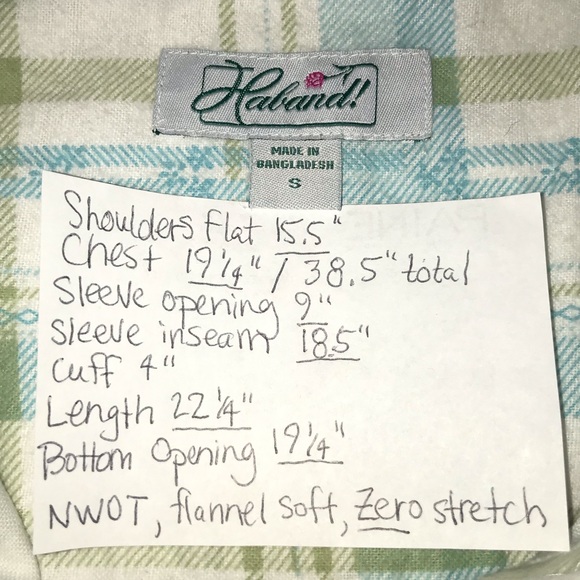 Haband!
MADE IN
BANGLADESH
S
Shoulders flat 15.5"
Chest 19 1/4" / 38.5" total
Sleeve opening 9"
Sleeve inseam 18.5"
Cuff 4"
Length 22 1/4"
Bottom Opening 19 1/4"
NWOT, flannel soft, Zero stretch